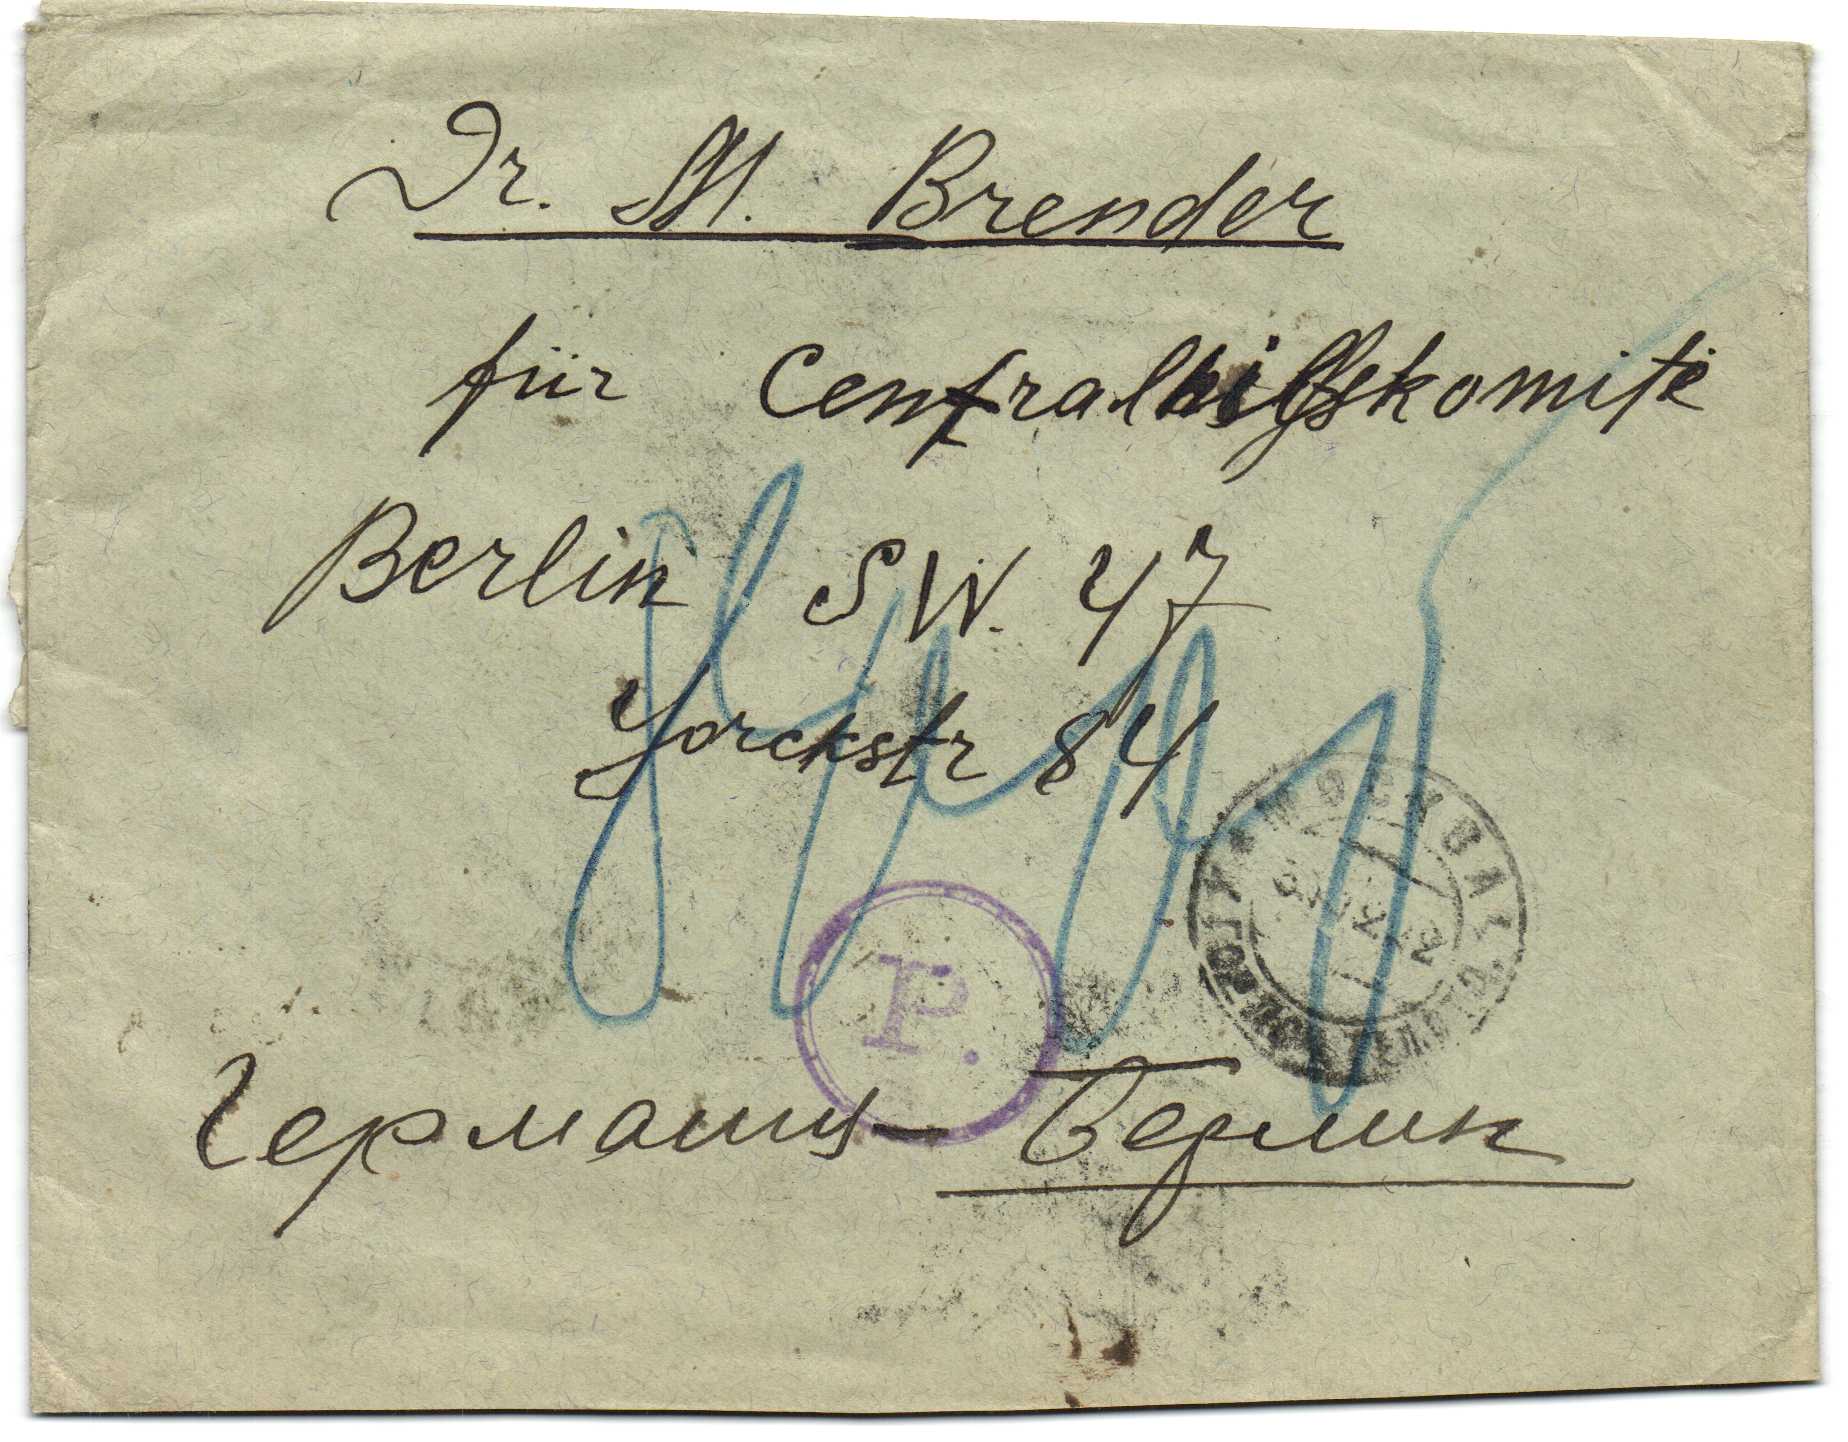 Dr. M. Brender
für Centralhilfskomite
Berlin SW. 47
Yorckstr 84
МОСКВА
P.
Германия — Берлин